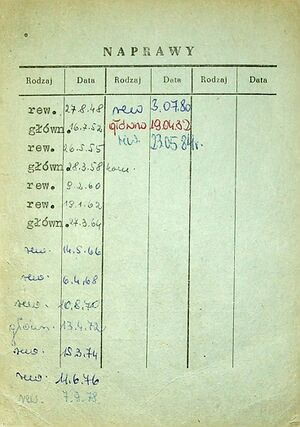 NAPRAWY
Rodzaj Data Rodzaj Data Rodzaj Data
rew. 27.8.48 rew 3.07.80
główn. 16.7.52 główna 19.04.82
rew. 26.5.55 rew. 23.05.84r.
główn. 28.3.58
rew. 9.2.60
rew. 19.1.62
główn. 27.3.64
rew. 14.5.66
rew. 6.4.68
rew. 10.8.70
główn. 13.4.72
rew. 15.3.74
rew. 11.6.76
rew. 7.9.78.